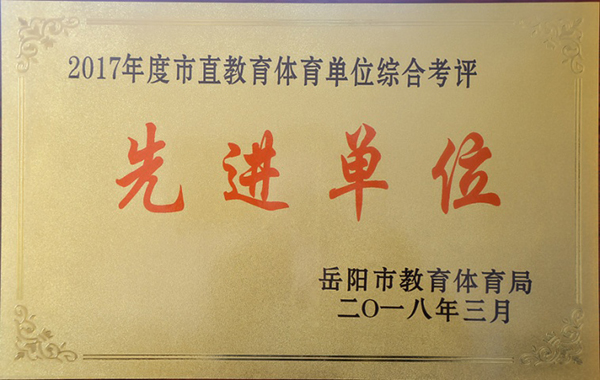 2017年度市直教育体育单位综合考评
先进单位
岳阳市教育体育局
二〇一八年三月